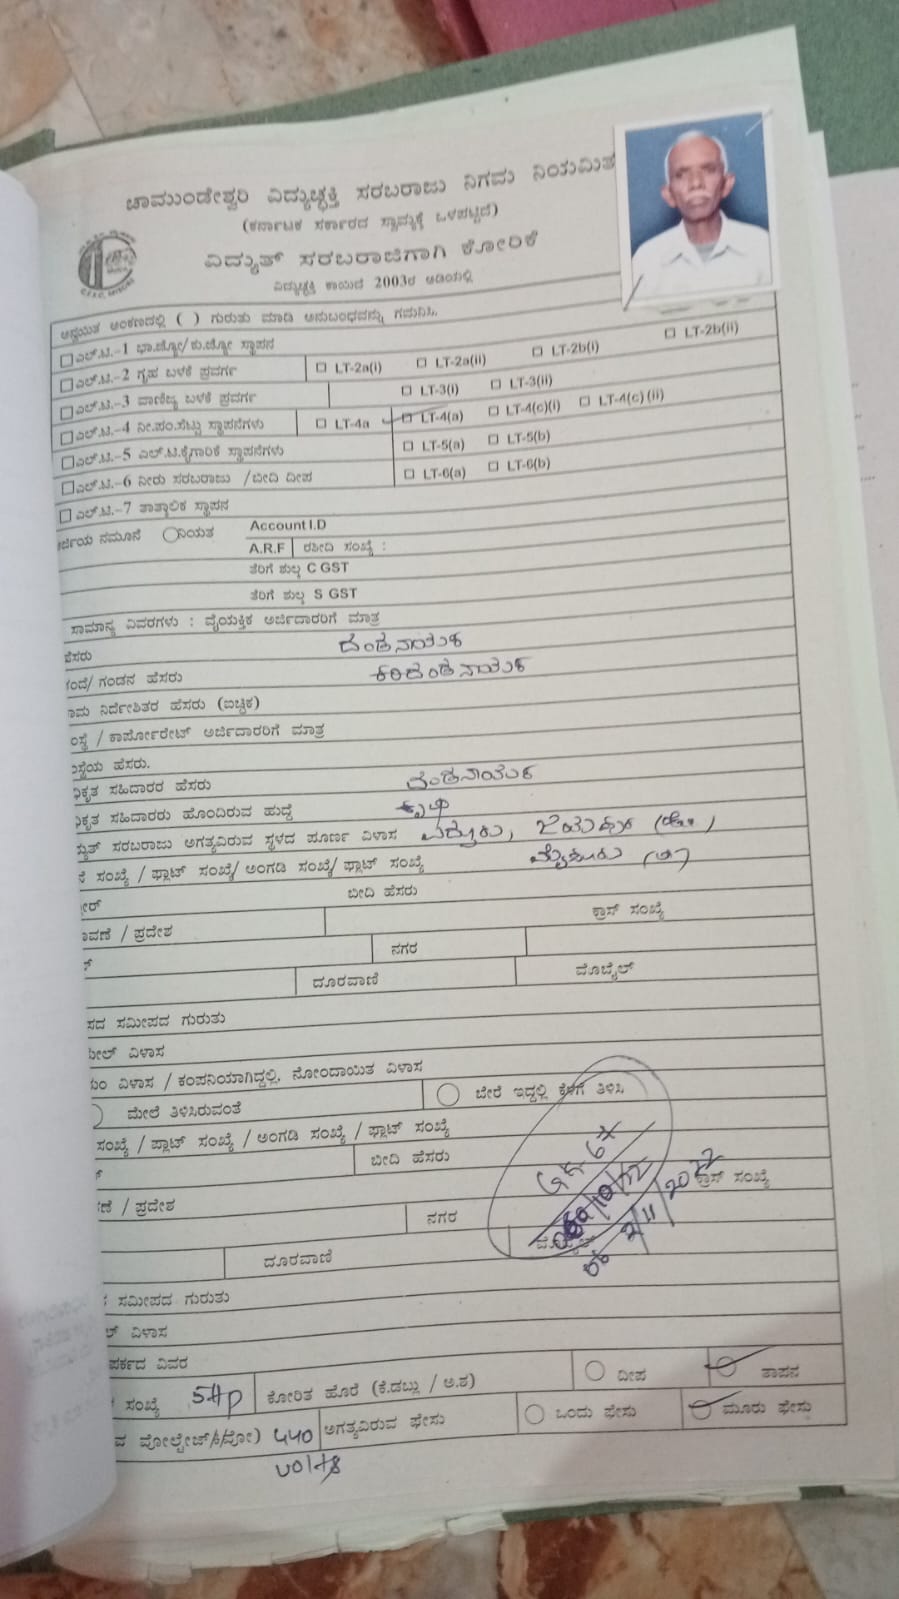 ಚಾಮುಂಡೇಶ್ವರಿ ವಿದ್ಯುಚ್ಛಕ್ತಿ ಸರಬರಾಜು ನಿಗಮ ನಿಯಮಿತ
(ಕರ್ನಾಟಕ ಸರ್ಕಾರದ ಸ್ವಾಮ್ಯಕ್ಕೆ ಒಳಪಟ್ಟಿದೆ)
ವಿದ್ಯುತ್ ಸರಬರಾಜಿಗಾಗಿ ಕೋರಿಕೆ
ವಿದ್ಯುಚ್ಛಕ್ತಿ ಕಾಯಿದೆ 2003ರ ಅಡಿಯಲ್ಲಿ
ಅನ್ವಯಿತ ಅಂಕಣದಲ್ಲಿ ( ) ಗುರುತು ಮಾಡಿ ಅನುಬಂಧವನ್ನು ಗಮನಿಸಿ.
ಎಲ್.ಟಿ.-1 ಭಾ.ಜ್ಯೋ/ಕು.ಜ್ಯೋ ಸ್ಥಾಪನ
ಎಲ್.ಟಿ.-2 ಗೃಹ ಬಳಕೆ ಪ್ರವರ್ಗ LT-2a(i) LT-2a(ii) LT-2b(i) LT-2b(ii)
ಎಲ್.ಟಿ.-3 ವಾಣಿಜ್ಯ ಬಳಕೆ ಪ್ರವರ್ಗ LT-3(i) LT-3(ii)
ಎಲ್.ಟಿ.-4 ನೀ.ಪಂ.ಸೆಟ್ಟು ಸ್ಥಾಪನೆಗಳು LT-4a LT-4(a) LT-4(c)(i) LT-4(c)(ii)
ಎಲ್.ಟಿ.-5 ಎಲ್.ಟಿ.ಕೈಗಾರಿಕೆ ಸ್ಥಾಪನೆಗಳು LT-5(a) LT-5(b)
ಎಲ್.ಟಿ.-6 ನೀರು ಸರಬರಾಜು /ಬೀದಿ ದೀಪ LT-6(a) LT-6(b)
ಎಲ್.ಟಿ.-7 ತಾತ್ಕಾಲಿಕ ಸ್ಥಾಪನ
ರ್ಜಿಯ ನಮೂನೆ ನಿಯತ Account I.D
A.R.F ರಶೀದಿ ಸಂಖ್ಯೆ :
ತೆರಿಗೆ ಶುಲ್ಕ C GST
ತೆರಿಗೆ ಶುಲ್ಕ S GST
ಸಾಮಾನ್ಯ ವಿವರಗಳು : ವೈಯಕ್ತಿಕ ಅರ್ಜಿದಾರರಿಗೆ ಮಾತ್ರ
ಹೆಸರು ದಂಡನಾಯಕ
ತಂದೆ/ ಗಂಡನ ಹೆಸರು ಕರಿದಂಡನಾಯಕ
ನಾಮ ನಿರ್ದೇಶಿತರ ಹೆಸರು (ಐಚ್ಛಿಕ)
ಸಂಸ್ಥೆ / ಕಾರ್ಪೋರೇಟ್ ಅರ್ಜಿದಾರರಿಗೆ ಮಾತ್ರ
ಸ್ಥೆಯ ಹೆಸರು.
ಧಿಕೃತ ಸಹಿದಾರರ ಹೆಸರು ದಂಡನಾಯಕ
ಧಿಕೃತ ಸಹಿದಾರರು ಹೊಂದಿರುವ ಹುದ್ದೆ ಕೃಷಿ
ದ್ಯುತ್ ಸರಬರಾಜು ಅಗತ್ಯವಿರುವ ಸ್ಥಳದ ಪೂರ್ಣ ವಿಳಾಸ ಜಯಪುರ (ಹೋ)
ನೆ ಸಂಖ್ಯೆ / ಫ್ಲಾಟ್ ಸಂಖ್ಯೆ/ ಅಂಗಡಿ ಸಂಖ್ಯೆ/ ಫ್ಲಾಟ್ ಸಂಖ್ಯೆ ಮೈಸೂರು (ತಾ)
ಬೀದಿ ಹೆಸರು
ಾವಣೆ / ಪ್ರದೇಶ ಕ್ರಾಸ್ ಸಂಖ್ಯೆ
ನಗರ
ದೂರವಾಣಿ ಮೊಬೈಲ್
ಸದ ಸಮೀಪದ ಗುರುತು
ಮೇಲ್ ವಿಳಾಸ
ವಿಳಾಸ / ಕಂಪನಿಯಾಗಿದ್ದಲ್ಲಿ, ನೋಂದಾಯಿತ ವಿಳಾಸ
ಮೇಲೆ ತಿಳಿಸಿರುವಂತೆ ಬೇರೆ ಇದ್ದಲ್ಲಿ ಕೆಳಗೆ ತಿಳಿಸಿ
ಸಂಖ್ಯೆ / ಪ್ಲಾಟ್ ಸಂಖ್ಯೆ / ಅಂಗಡಿ ಸಂಖ್ಯೆ / ಫ್ಲಾಟ್ ಸಂಖ್ಯೆ
ಬೀದಿ ಹೆಸರು
ಣೆ / ಪ್ರದೇಶ ಕ್ರಾಸ್ ಸಂಖ್ಯೆ
2/11/2022
ನಗರ
ದೂರವಾಣಿ ಮೊಬೈಲ್
ಸಮೀಪದ ಗುರುತು
ಲ್ ವಿಳಾಸ
ಪರ್ಕದ ವಿವರ
ಸಂಖ್ಯೆ 5Hp ಕೋರಿತ ಹೊರೆ (ಕೆ.ಡಬ್ಲು / ಅ.ಶ) ದೀಪ ತಾಪನ
ವ ವೋಲ್ಟೇಜ್ 440 volts ಅಗತ್ಯವಿರುವ ಫೇಸು ಒಂದು ಫೇಸು ಮೂರು ಫೇಸು